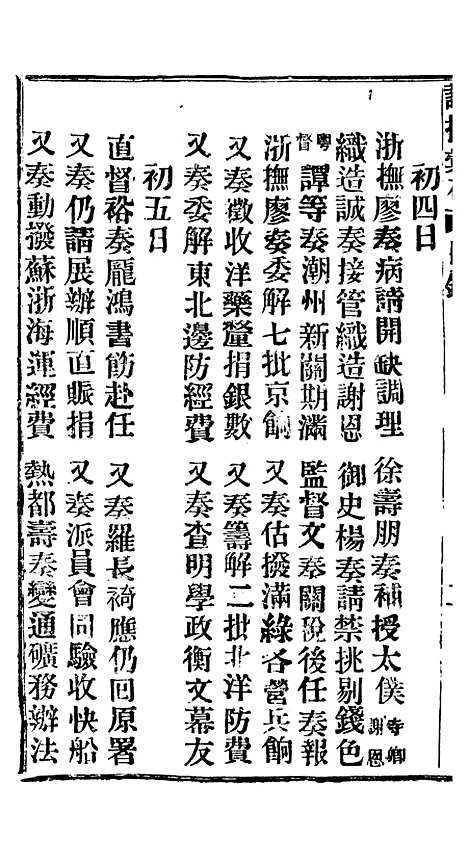 初四日
浙撫廖奏病請開缺調理　徐壽朋奏補授太僕寺卿謝恩
織造誠奏接管織造謝恩　御史楊奏請禁挑剔錢色
粵督譚等奏潮州新關期滿　監督文奏關稅後任奏報
浙撫廖奏委解七批京餉　又奏估撥滿綠各營兵餉
又奏徵收洋藥釐捐銀數　又奏籌解二批北洋防費
又奏委解東北邊防經費　又奏查明學政衡文幕友
初五日
直督裕奏龎鴻書飭赴任　又奏羅長䄎應仍回原署
又奏仍請展辦順直賑捐　又奏派員會同驗收快船
又奏動撥蘇浙海運經費　熱都壽奏變通礦務辦法